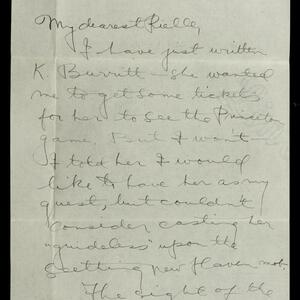 My dearest Lielle,
I have just written
K. Burritt - she wanted
me to get some tickets
for her to see the Princeton
game. But I won't -
I told her I would
like to have her as my
guest, but couldn't
consider casting her
"guideless" upon the
seething New Haven mob.
The night of the